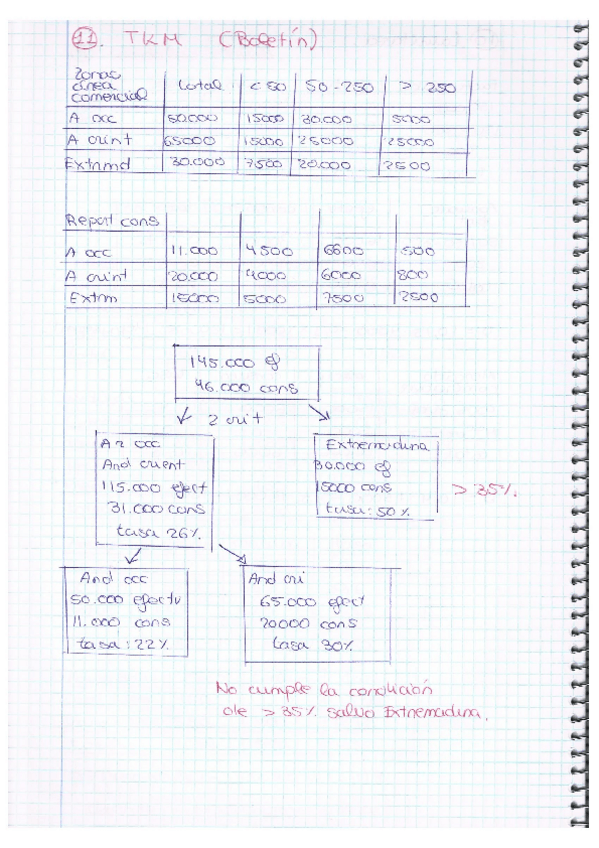 11. TKM (Boletín)
Zonas
área
comercial total < 50 50-250 > 250
A occ 50.000 15000 30.000 5000
A orint 65000 15000 25000 25000
Extrmd 30.000 7500 20.000 2500
Repart cons
A occ 11.000 4500 6600 500
A orint 20.000 4000 6000 800
Extrm 15000 5000 7500 2500
145.000 ef
46.000 cons
2 crit
And occ
And orient
115.000 efect
31.000 cons
tasa 26%
Extremadura
30.000 ef
15000 cons
tasa: 50%
> 35%
And occ
50.000 efectv
11.000 cons
tasa: 22%
And ori
65.000 efect
20000 cons
tasa 30%
No cumple la condición
de > 35% salvo Extremadura.